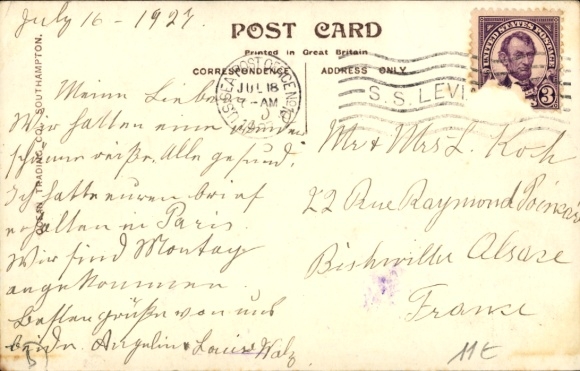 July 16 - 1927.
POST CARD
Printed in Great Britain
CORRESPONDENCE
ADDRESS ONLY
OCEAN TRADING CO., SOUTHAMPTON.
UNITED STATES POSTAGE
3
U.S. SEA POST
JUL 18
AM
S.S. LEVI
Meine Liebe
Wir hatten eine
schöne reiße. Alle gesund.
Ich hatte euren brief
erhalten in Paris.
Wir sind Montag
angekommen
Besten grüße von uns
beide. Angelin Louise Walz
Mr & Mrs L. Koch
22 Rue Raymond Poincaré
Bishwiller Alsace
France
11€